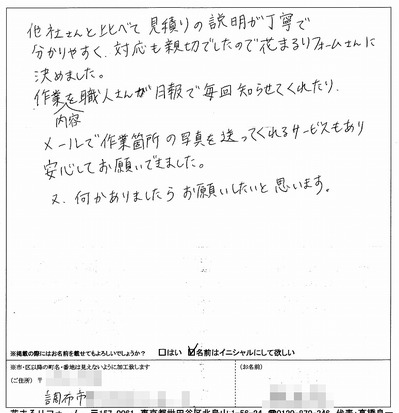 他社さんと比べて見積りの説明が丁寧で
分かりやすく、対応も親切でしたので花まるリフォームさんに
決めました。
作業内容を職人さんが日報で毎回知らせてくれたり、
メールで作業箇所の写真を送ってくれるサービスもあり
安心してお願いできました。
又、何かありましたらお願いしたいと思います。
※掲載の際にはお名前を載せてもよろしいでしょうか? □はい ☑名前はイニシャルにして欲しい
※市・区以降の町名・番地は見えないように加工致します
(ご住所) 〒
(お名前)
調布市
花まるリフォーム 〒157-0061 東京都世田谷区北烏山1-56-24 ☎0120-870-346 代表:高橋良一